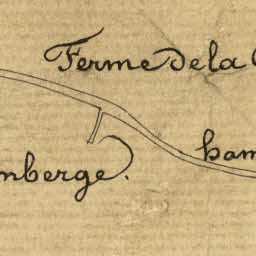 Ferme de la
mberge.
ham